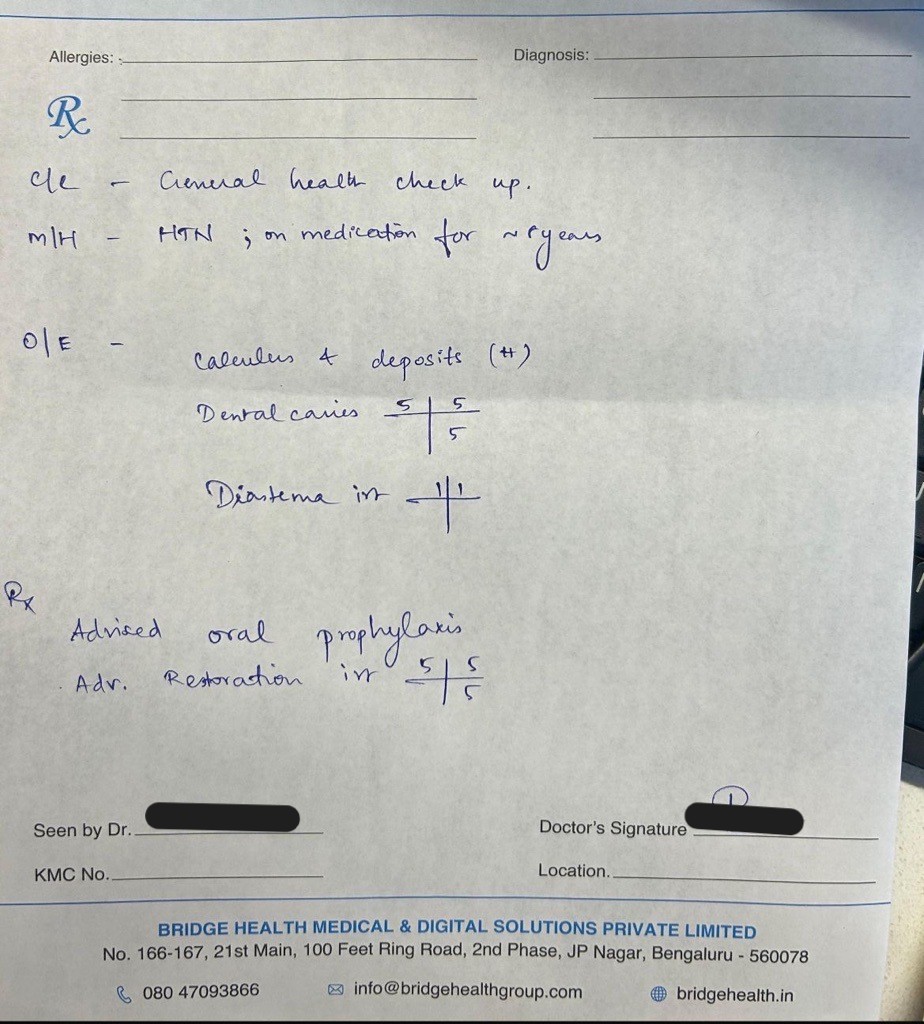 Allergies: Diagnosis:
Rx
c/c - General health check up.
M/H - HTN ; on medication for ~ years
O/E -
Calculus & deposits (++)
Dental caries 5 | 5
5
Diastema irt 1 | 1
Rx
Advised oral prophylaxis
Adv. Restoration irt 5 | 5
5
Seen by Dr. Doctor's Signature
KMC No. Location.
BRIDGE HEALTH MEDICAL & DIGITAL SOLUTIONS PRIVATE LIMITED
No. 166-167, 21st Main, 100 Feet Ring Road, 2nd Phase, JP Nagar, Bengaluru - 560078
080 47093866 info@bridgehealthgroup.com bridgehealth.in